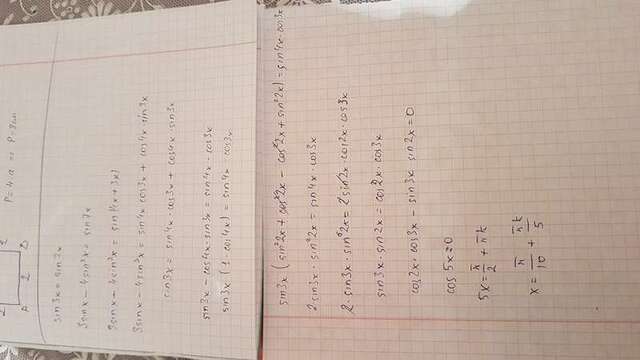 2 2
A 2 B
P = 4·a => P = 8cm
sin3x = sin7x
3sinx - 4sin³x = sin7x
3sinx - 4sin³x = sin(4x + 3x)
3sinx - 4sin³x = sin4x cos3x + cos4x · sin3x
sin3x = sin4x · cos3x + cos4x · sin3x
sin3x - cos4x · sin3x = sin4x · cos3x
sin3x (1 - cos4x) = sin4x · cos3x
sin3x (sin²2x + cos²2x - cos²2x + sin²2x) = sin4x · cos3x
2 sin3x · sin²2x = sin4x · cos3x
2 · sin3x · sin²2x = 2sin2x · cos2x · cos3x
sin3x · sin2x = cos2x · cos3x
cos2x · cos3x - sin3x sin2x = 0
cos 5x = 0
5x = π/2 + πk
x = π/10 + πk/5